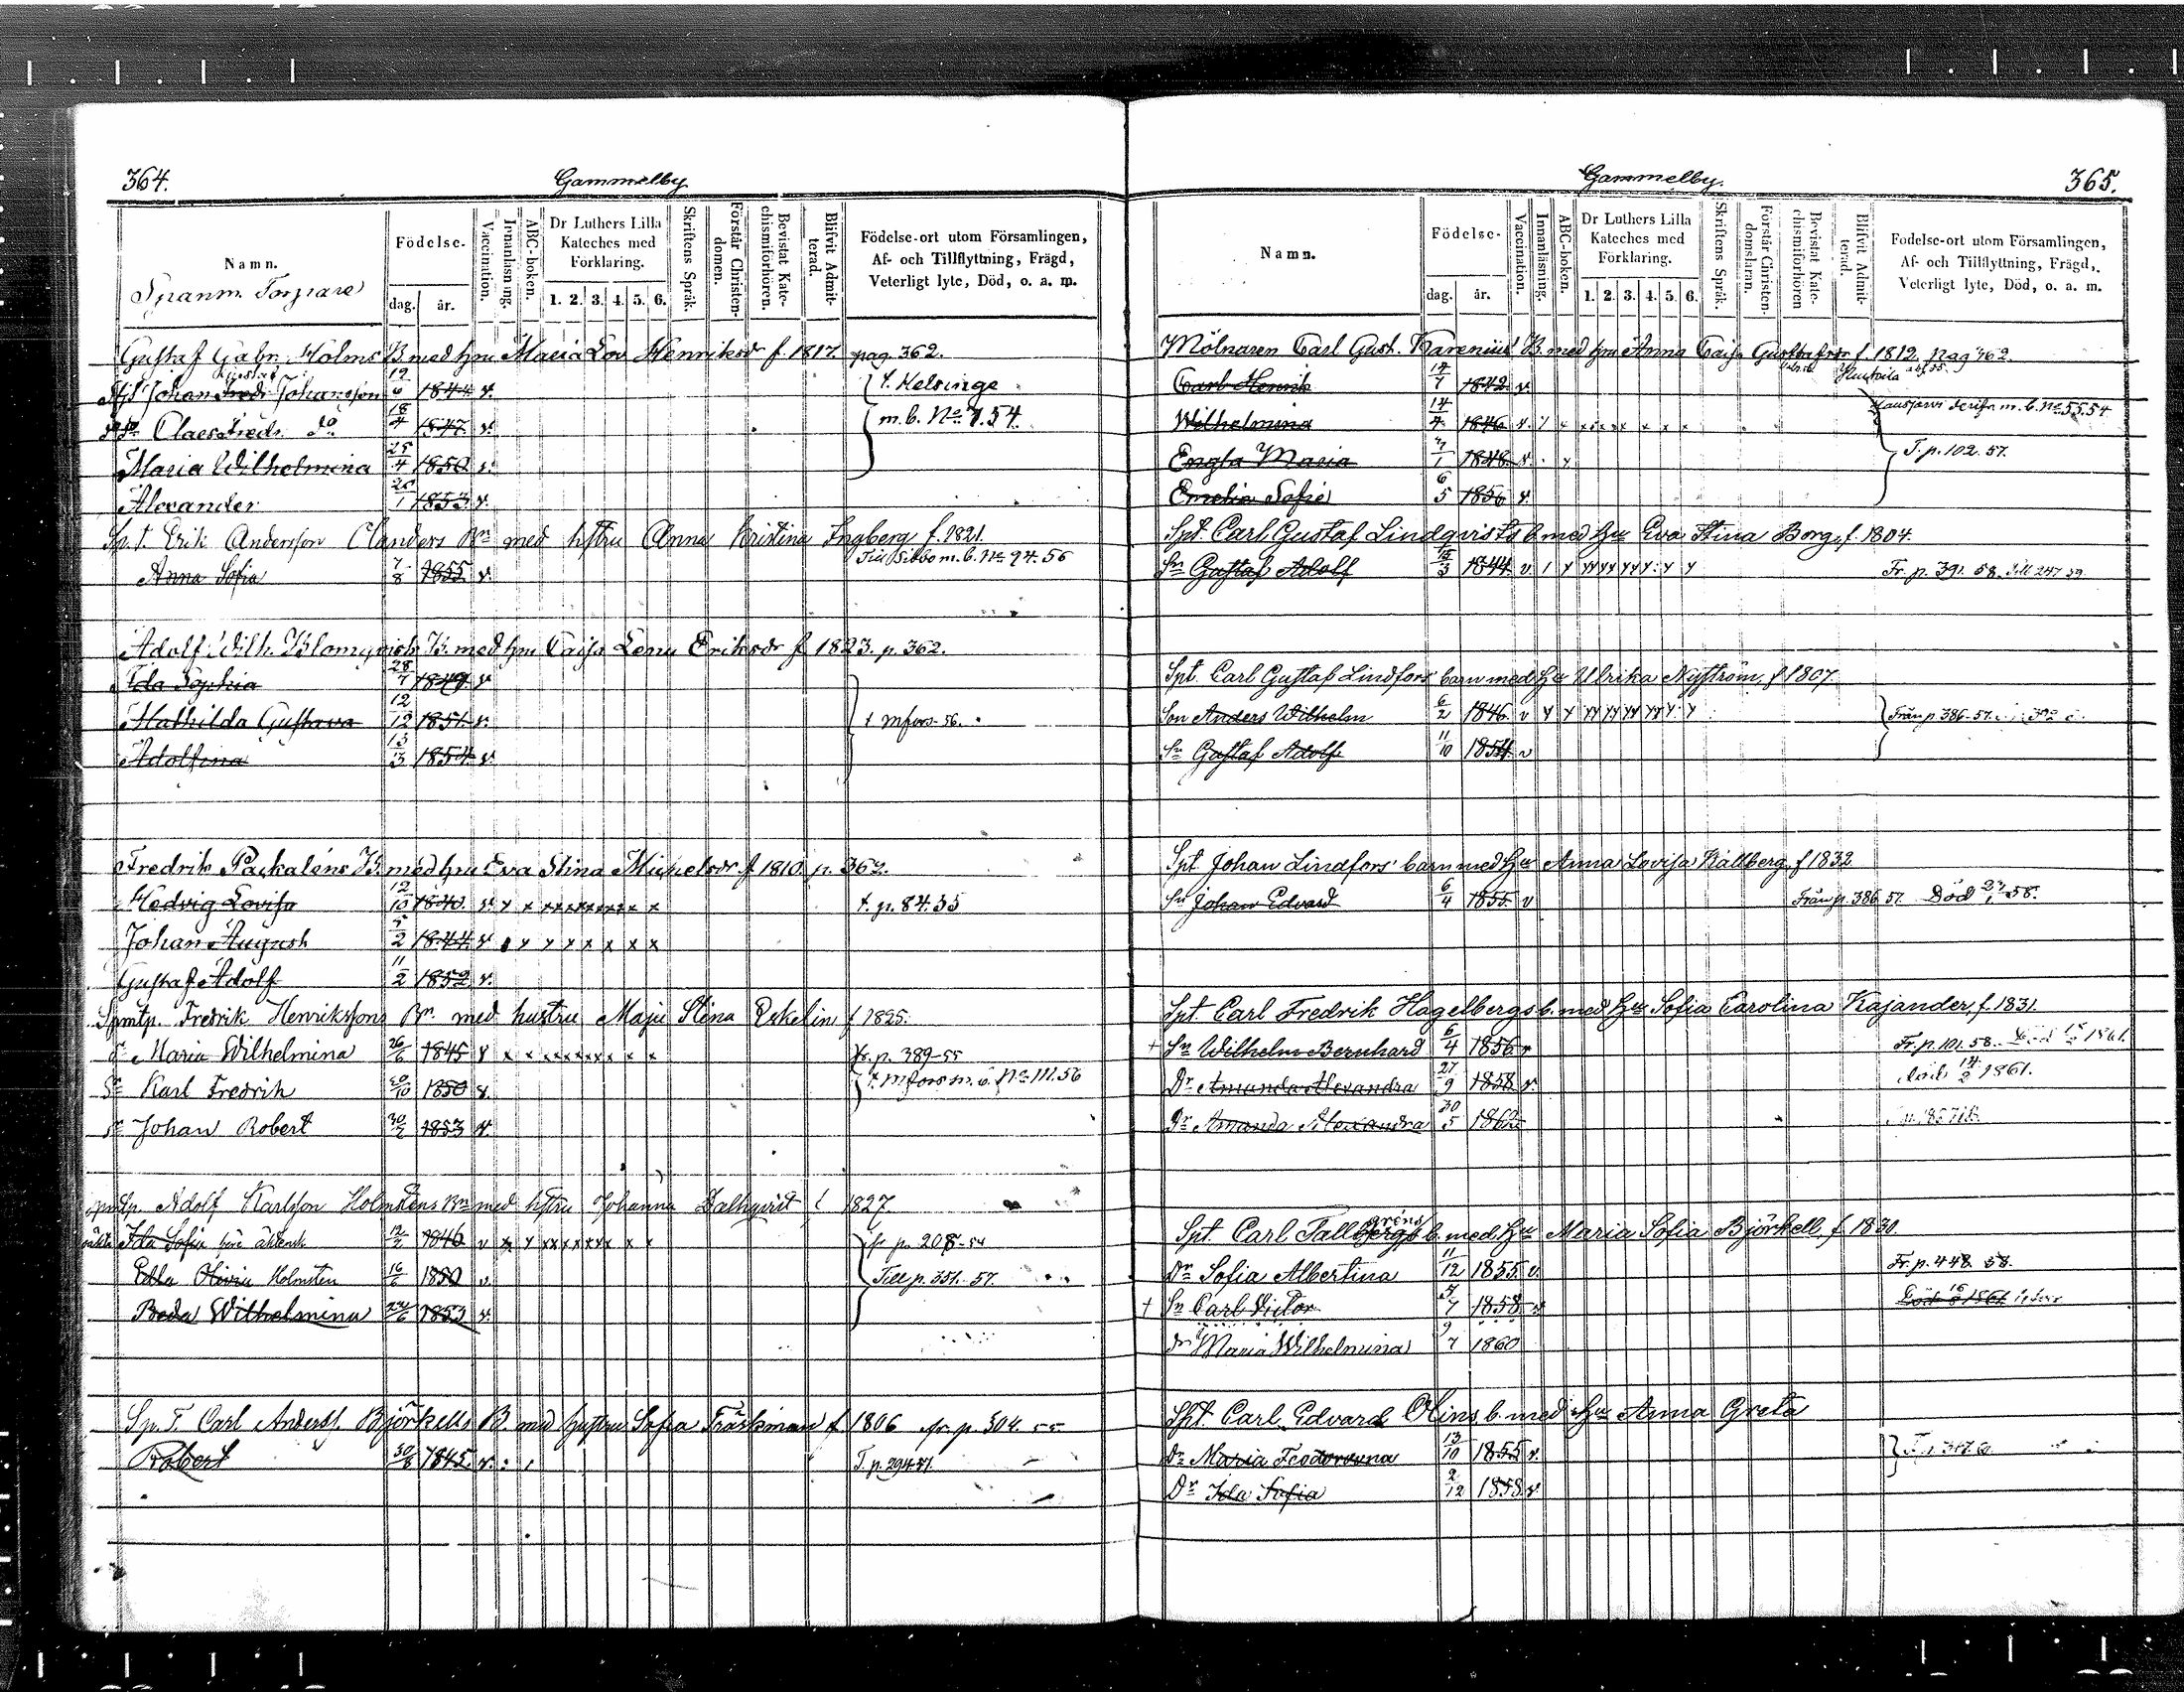 364.
Gammelby
Namn.
Födelse-
dag. år.
Vaccination.
Innanläsning.
ABC-boken.
Dr Luthers Lilla Kateches med Förklaring.
1. 2. 3. 4. 5. 6.
Skriftens Språk.
Förstår Christendomen.
Bevistat Katechismiförhören.
Blifvit Admitterad.
Födelse-ort utom Församlingen,
Af- och Tillflyttning, Frägd,
Veterligt lyte, Död, o. a. m.
Gustaf Gabr. Holms B med hu Maria Lov Henriksdr f. 1817. pag. 362.
Johan Johansson 19/6 1844 v. t. Helsinge
Claes Fredr. do 18/4 1847. v. m.b. No 7.54.
Maria Wilhelmina 25/4 1850 v.
Alexander 1853 v.
Sp.t. Erik Andersson Clanders Bn med hstru Anna Kristina Ingberg f. 1821.
Anna Sofia 7/8 1855 v. Till Sibbo m.b. No 94.56
Adolf Wilh. Blomqvists B. med hu Caisa Lena Eriksdr f 1823. p. 362.
Ida Sophia 28/7 1849. v
Mathilda Gustava 12/12 1851. v. t mfors 56.
Adolfina 13/3 1854. v.
Fredrik Paskaléns B. med hu Eva Stina Michelsdr f 1810. p. 362.
Hedvig Lovisa 12/10 1840. v. x x xxxxxxx x x t. p. 84.55
Johan August 5/2 1844 v x x x x x x x
Gustaf Adolf 11/2 1852 v.
Spmtp. Fredrik Henrikssons Bn. med hustru Maja Stina Eskelin f 1825.
Dr Maria Wilhelmina 26/6 1845 v x x xxxxxxx x x fr. p. 389-55
Sn Karl Fredrik 20/10 1850 v. t. mfors m.b. No 111.56
Sn Johan Robert 1853 v.
spmtp. Adolf Karlsson Holmstens Bn med hstru Johanna Dalhqvist f 1827
Ida Sofia före äktensk 1846 v x x xxxxxxx x x fr p. 208-54
Edla Olivia Holmsten 16/6 1850 v. Till p. 351. 57.
Beda Wilhelmina 24/6 1853 v.
Sp. T. Carl Anderss. Björkells B. med hustru Sofia Träskman f. 1806 fr. p. 304. 55
Robert 30/8 1845. v. T. p. 294.57
365.
Gammelby.
Namn.
Födelse-
dag. år.
Vaccination.
Innanläsning.
ABC-boken.
Dr Luthers Lilla Kateches med Förklaring.
1. 2. 3. 4. 5. 6.
Skriftens Språk.
Förstår Christendomsläran.
Bevistat Katechismiförhören
Blifvit Admitterad.
Födelse-ort utom Församlingen,
Af- och Tillflyttning, Frägd,
Veterligt lyte, Död, o. a. m.
Mölnaren Carl Gust. Karenius B. med hu Anna Caisa Gustafsdr f. 1812. pag 362.
Carl Henrik 14/7 1842 v.
Wilhelmina 14/4 1846 v. m.b. No 55.54
Engla Maria 7/1 1848. v. T. p. 102. 57.
Emelia Sofie 6/5 1850 v.
Spt. Carl Gustaf Lindqvists b. med Hu Eva Stina Borg, f. 1804.
Sn Gustaf Adolf 1844. v. Fr. p. 391. 58. Till 247 59
Spt. Carl Gustaf Lindfors' barn med Hu Ulrika Nyström, f 1807.
Son Anders Wilhelm 6/2 1846. v Från p 386-57.
Sn Gustaf Adolf 11/10 1854. v
Spt. Johan Lindfors' barn med Hu Anna Lovisa Källberg, f 1832
Sn Johan Edvard 6/4 1855. v Från p. 386 57. Död 58.
Spt. Carl Fredrik Hagelbergs b. med Hu Sofia Carolina Kajander, f. 1831.
+ Sn Wilhelm Bernhard 6/4 1856. v Fr. p. 101. 58. 1861.
Dr Amanda Alexandra 27/9 1858. v död 1861.
Dr Amanda Alexandra 30/5 1862
Spt. Carl Fallgréns b. med Hu Maria Sofia Björkell, f 1830.
Dr Sofia Albertina 11/12 1855. v. Fr. p. 448. 58.
+ Sn Carl Victor 7 1858. v
dr Maria Wilhelmina 9/7 1860
Spt. Carl Edvard Olins b. med Hu Anna Greta
Dr Maria Feodorovna 13/10 1855 v.
Dr Ida Sofia 2/12 1858 v.